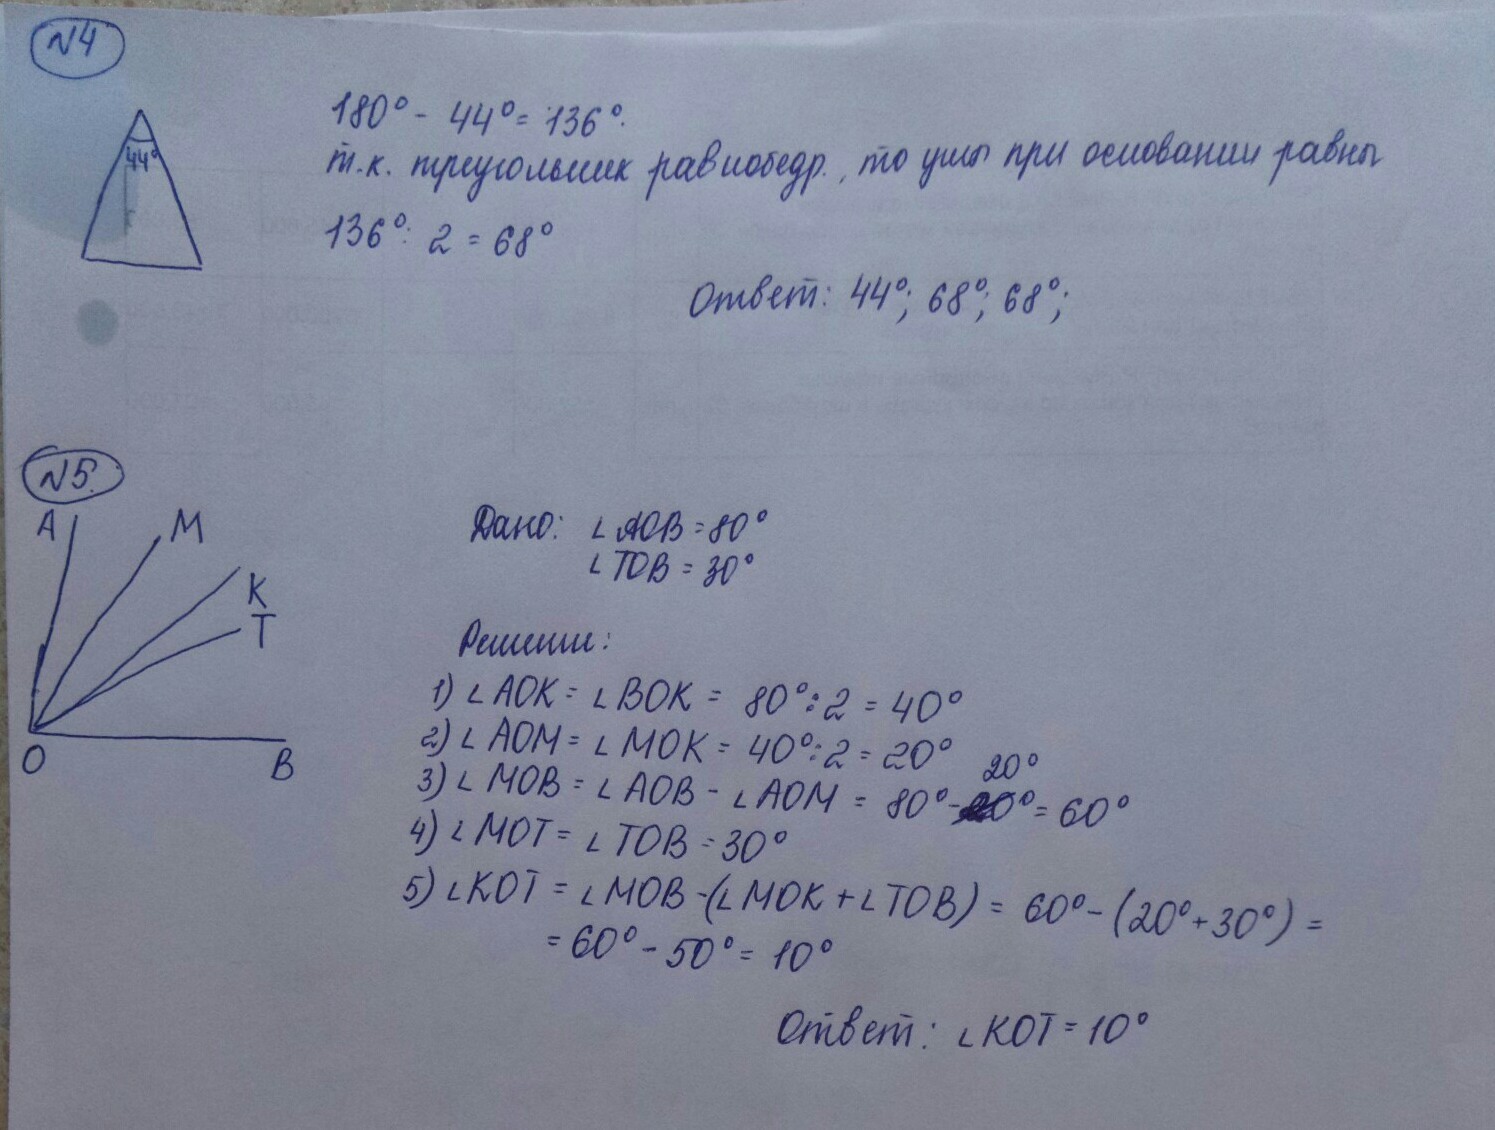 N4
44°
180° - 44° = 136°.
т.к. треугольник равнобедр., то углы при основании равны
136° : 2 = 68°
Ответ: 44°; 68°; 68°;
N5.
A
M
K
T
O
B
Дано: ∠AOB = 80°
∠TOB = 30°
Решение:
1) ∠AOK = ∠BOK = 80° : 2 = 40°
2) ∠AOM = ∠MOK = 40° : 2 = 20°
3) ∠MOB = ∠AOB - ∠AOM = 80° - 20° = 60°
4) ∠MOT = ∠TOB = 30°
5) ∠KOT = ∠MOB - (∠MOK + ∠TOB) = 60° - (20° + 30°) =
= 60° - 50° = 10°
Ответ: ∠KOT = 10°